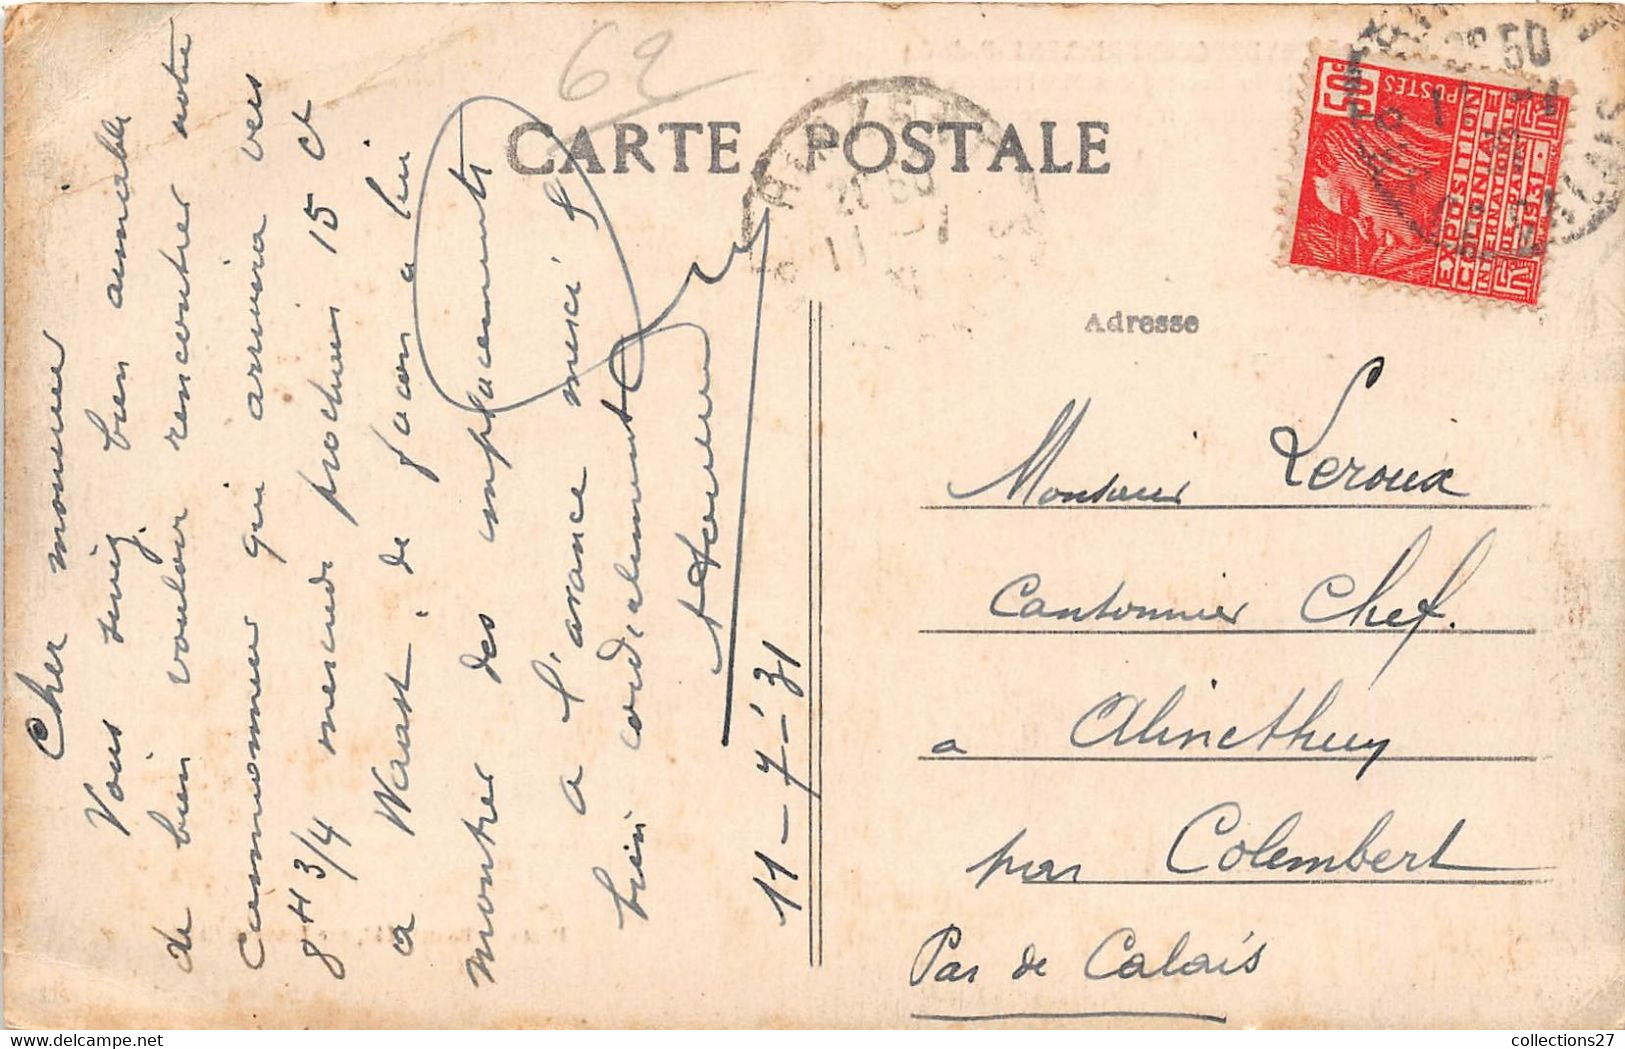 62
CARTE POSTALE
Cher monsieur
Vous seriez bien aimable
de bien vouloir rencontrer notre
camionneur qui arrivera vers
8 H 3/4 mercredi prochain 15 ct
a Wast. de facon a lui
montrer des emplacements
a l'avance merci &
bien cordialement
11-7-31
50c
POSTES
EXPOSITION
COLONIALE
INTERNATIONALE
DE PARIS
1931
Adresse
Monsieur Leroux
Cantonnier Chef.
a Alincthuy
par Colembert
Pas de Calais
collections27